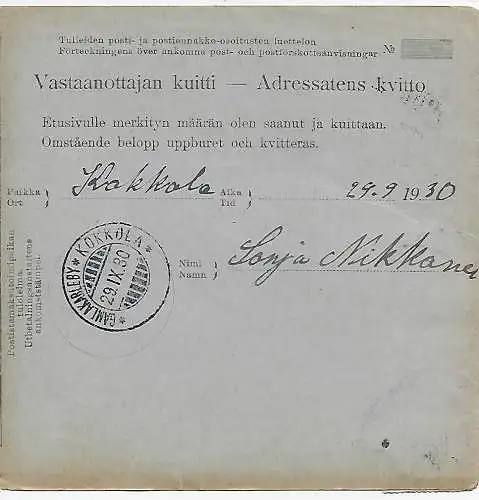 Tulleiden posti- ja postiennakko-osoitusten luettelon
Förteckningens över ankomna post- och postförskottsanvisningar №
Vastaanottajan kuitti — Adressatens kvitto
Etusivulle merkityn määrän olen saanut ja kuittaan.
Omstående belopp uppburet och kvitteras.
Paikka Ort Kokkola Aika Tid 29.9 1930
Nimi Namn Sonja Nikkanen
KOKKOLA
29.IX.30
GAMLAKARLEBY
Postistamaksutoimipaikan
tuloleima.
Utbetalningsanstaltens
ankomststämpel.